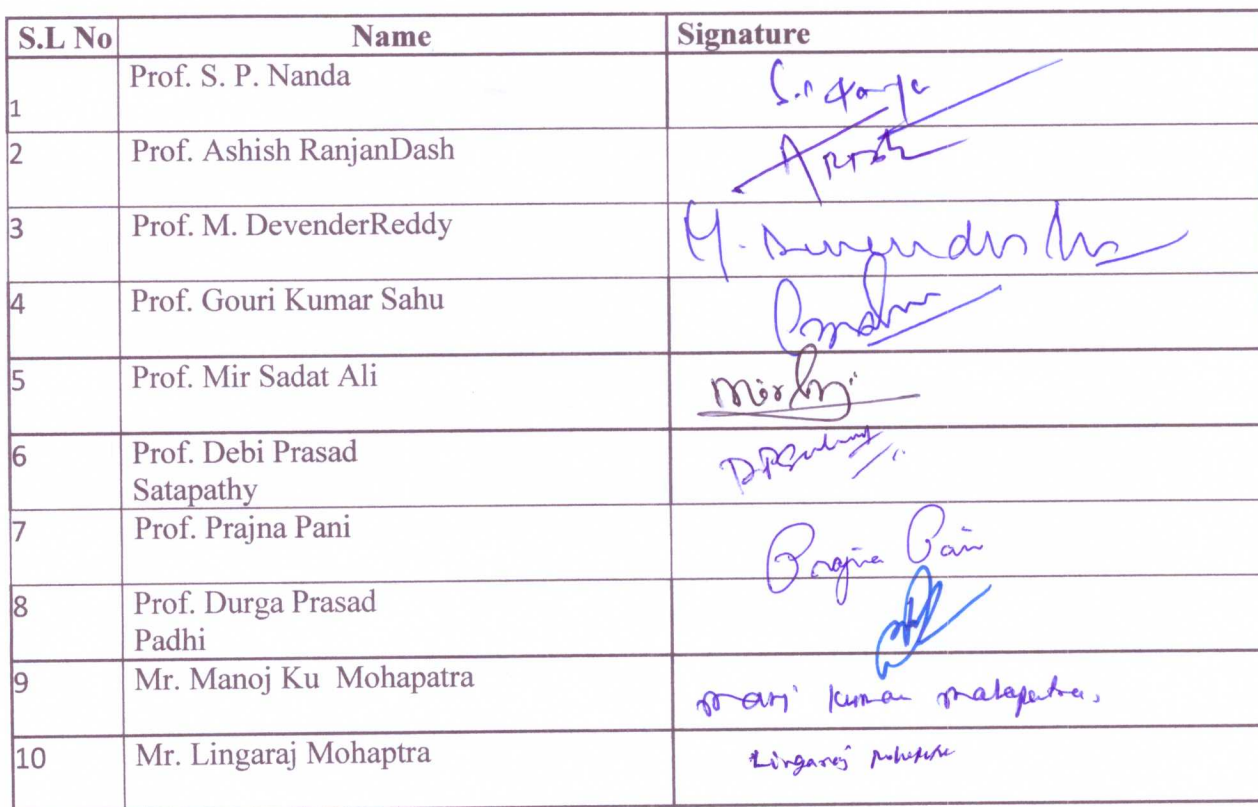 S.L No Name Signature
1 Prof. S. P. Nanda
2 Prof. Ashish RanjanDash
3 Prof. M. DevenderReddy M. Devender
4 Prof. Gouri Kumar Sahu
5 Prof. Mir Sadat Ali Mir
6 Prof. Debi Prasad
Satapathy
7 Prof. Prajna Pani Prajna Pani
8 Prof. Durga Prasad
Padhi
9 Mr. Manoj Ku Mohapatra Manoj Kumar Mohapatra,
10 Mr. Lingaraj Mohaptra Lingaraj